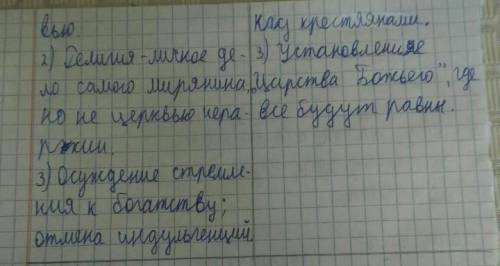 вью.
2) Религия-личное де-
ло самого мирянина,
но не церковью иера-
рхии.
3) Осуждение стремле-
ния к богатству;
отмена индульгенций.
кду крестянами.
3) Установление
"Царства Божьего", где
все будут равны.